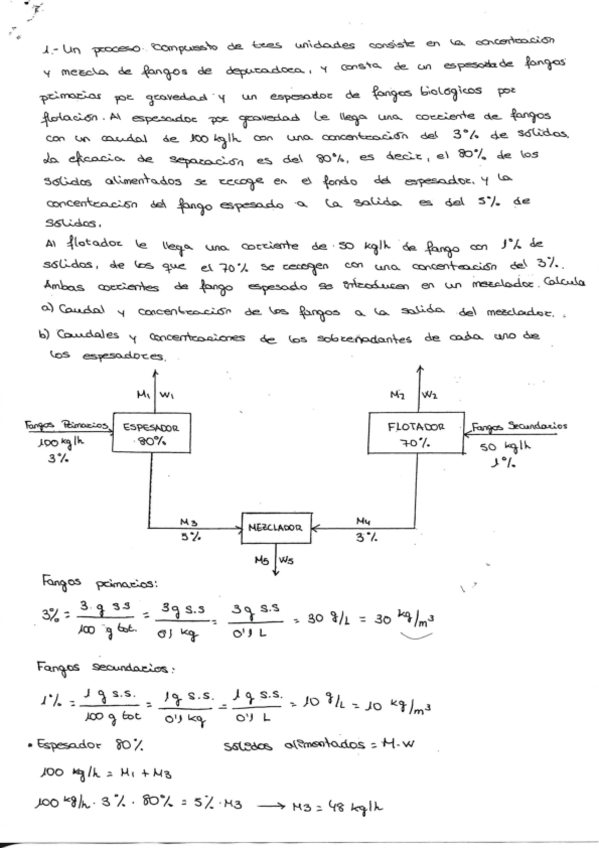 1.- Un proceso compuesto de tres unidades consiste en la concentración
y mezcla de fangos de depuradora, y consta de un espesador de fangos
primarios por gravedad y un espesador de fangos biologicos por
flotación. Al espesador por gravedad le llega una corriente de fangos
con un caudal de 100 kg/h con una concentración del 3% de sólidos.
La eficacia de separación es del 80%, es decir, el 80% de los
sólidos alimentados se recoge en el fondo del espesador, y la
concentración del fango espesado a la salida es del 5% de
sólidos.
Al flotador le llega una corriente de 50 kg/h de fango con 1% de
sólidos, de los que el 70% se recogen con una concentración del 3%.
Ambas corrientes de fango espesado se introducen en un mezclador. Calcula
a) Caudal y concentración de los fangos a la salida del mezclador.
b) Caudales y concentraciones de los sobrenadantes de cada uno de
los espesadores.
M1 W1 M2 W2
Fangos Primarios ESPESADOR FLOTADOR Fangos Secundarios
100 kg/h 80% 70% 50 kg/h
3% 1%
M3 MEZCLADOR M4
5% 3%
M5 W5
Fangos primarios:
3% = 3 g ss / 100 g tot. = 3g s.s / 0'1 kg = 3g s.s / 0'1 L = 30 g/L = 30 kg/m³
Fangos secundarios:
1% = 1 g s.s. / 100 g tot = 1g s.s. / 0'1 kg = 1 g s.s. / 0'1 L = 10 g/L = 10 kg/m³
• Espesador 80% sólidos alimentados = M·W
100 kg/h = M1 + M3
100 kg/h · 3% · 80% = 5% · M3 → M3 = 48 kg/h